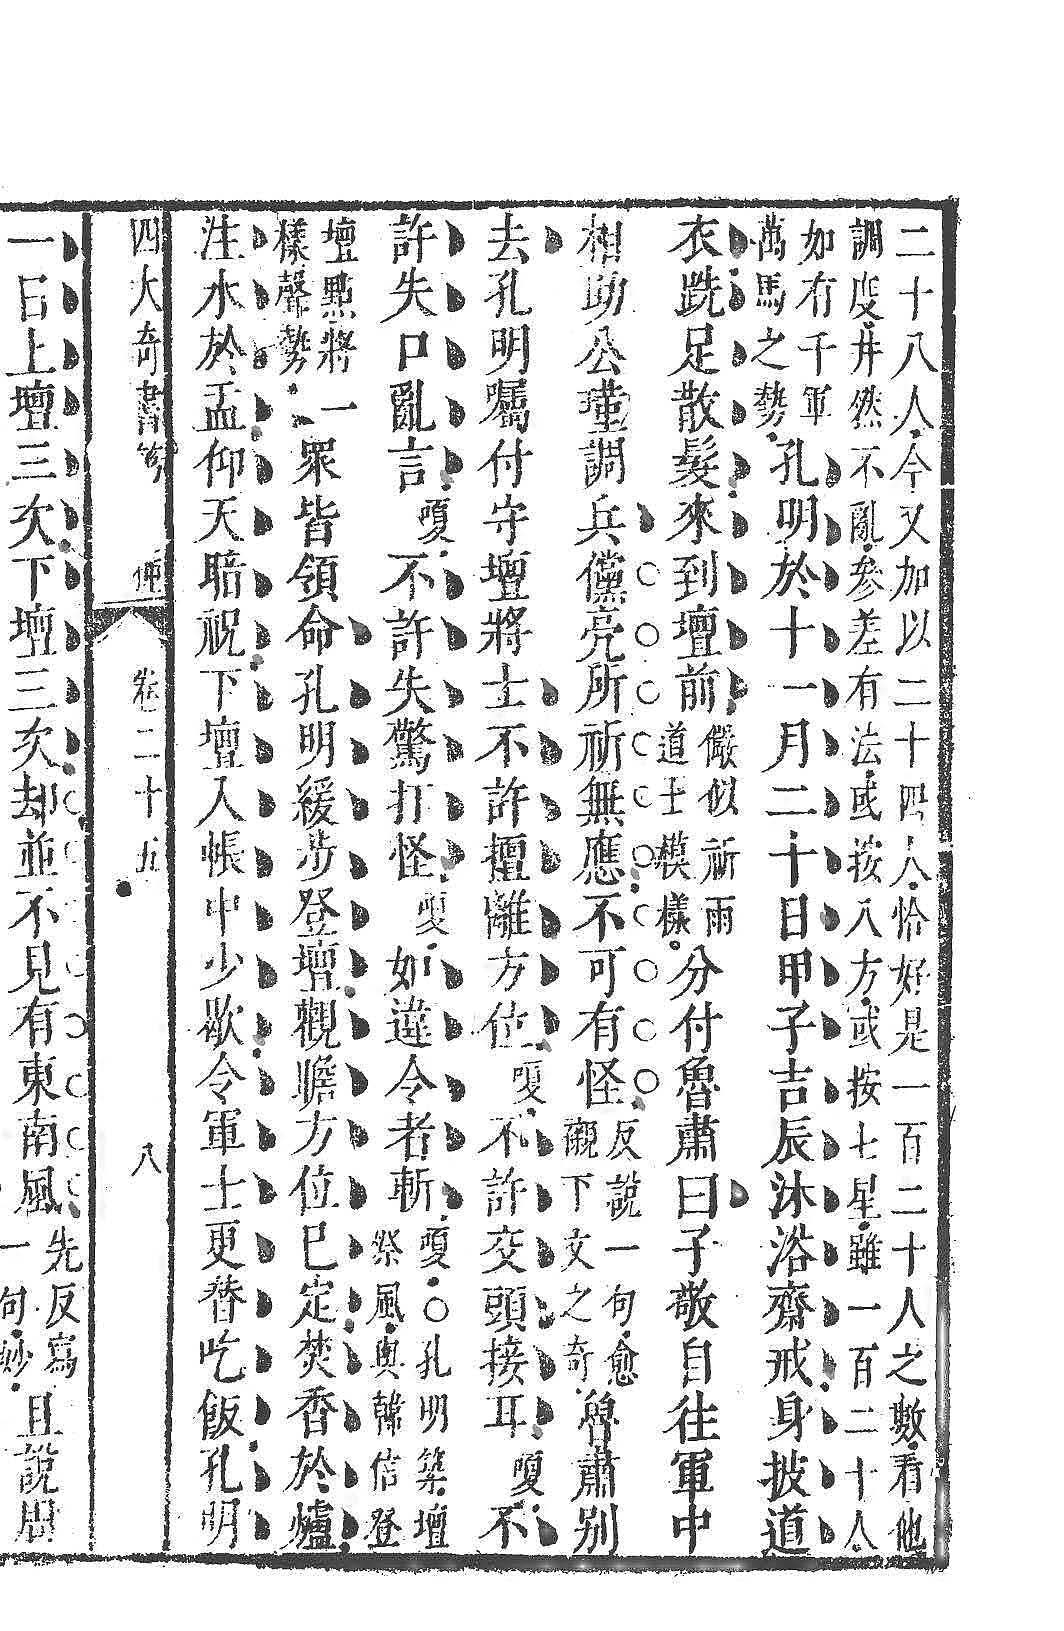 二十八人今又加以二十四人恰好是一百二十人之數看他
調度井然不亂參差有法或按八方或按七星雖一百二十人
如有千軍
萬馬之勢
孔明於十一月二十日甲子吉辰沐浴齋戒身披道
衣跣足散髮來到壇前
儼似祈雨
道士模樣
分付魯肅曰子敬自往軍中
相助公瑾調兵儻亮所祈無應不可有怪
反說一句愈
襯下文之奇
魯肅別
去孔明囑付守壇將士不許擅離方位嗄不許交頭接耳嗄不
許失口亂言嗄不許失驚打怪嗄如違令者斬
嗄○孔明築壇
祭風與韓信登
壇點將一
樣聲勢
衆皆領命孔明緩步登壇觀瞻方位已定焚香於爐
注水於盂仰天暗祝下壇入帳中少歇令軍士更替吃飯孔明
四大奇書第
卷二十五
八
一日上壇三次下壇三次却並不見有東南風
先反寫
一句妙
且說周